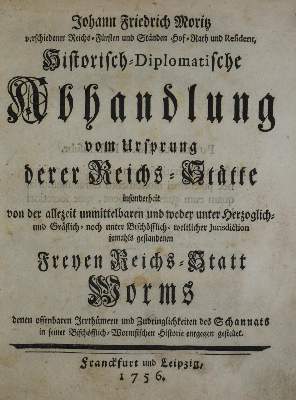 Johann Friedrich Moritz
verschiedener Reichs-Fürsten und Ständen Hof-Rath und Resident,
Historisch-Diplomatische
Abhandlung
vom Ursprung
derer Reichs-Stätte
insonderheit
von der allezeit unmittelbaren und weder unter Herzoglich-
und Gräflich- noch unter Bischöfflich- weltlicher Jurisdiction
jemahls gestandenen
Freyen Reichs-Statt
Worms
denen offenbaren Irrthümern und Zudringlichkeiten des Schannats
in seiner Bischöfflich-Wormsischen Historie entgegen gestellet.
Franckfurt und Leipzig,
1756.